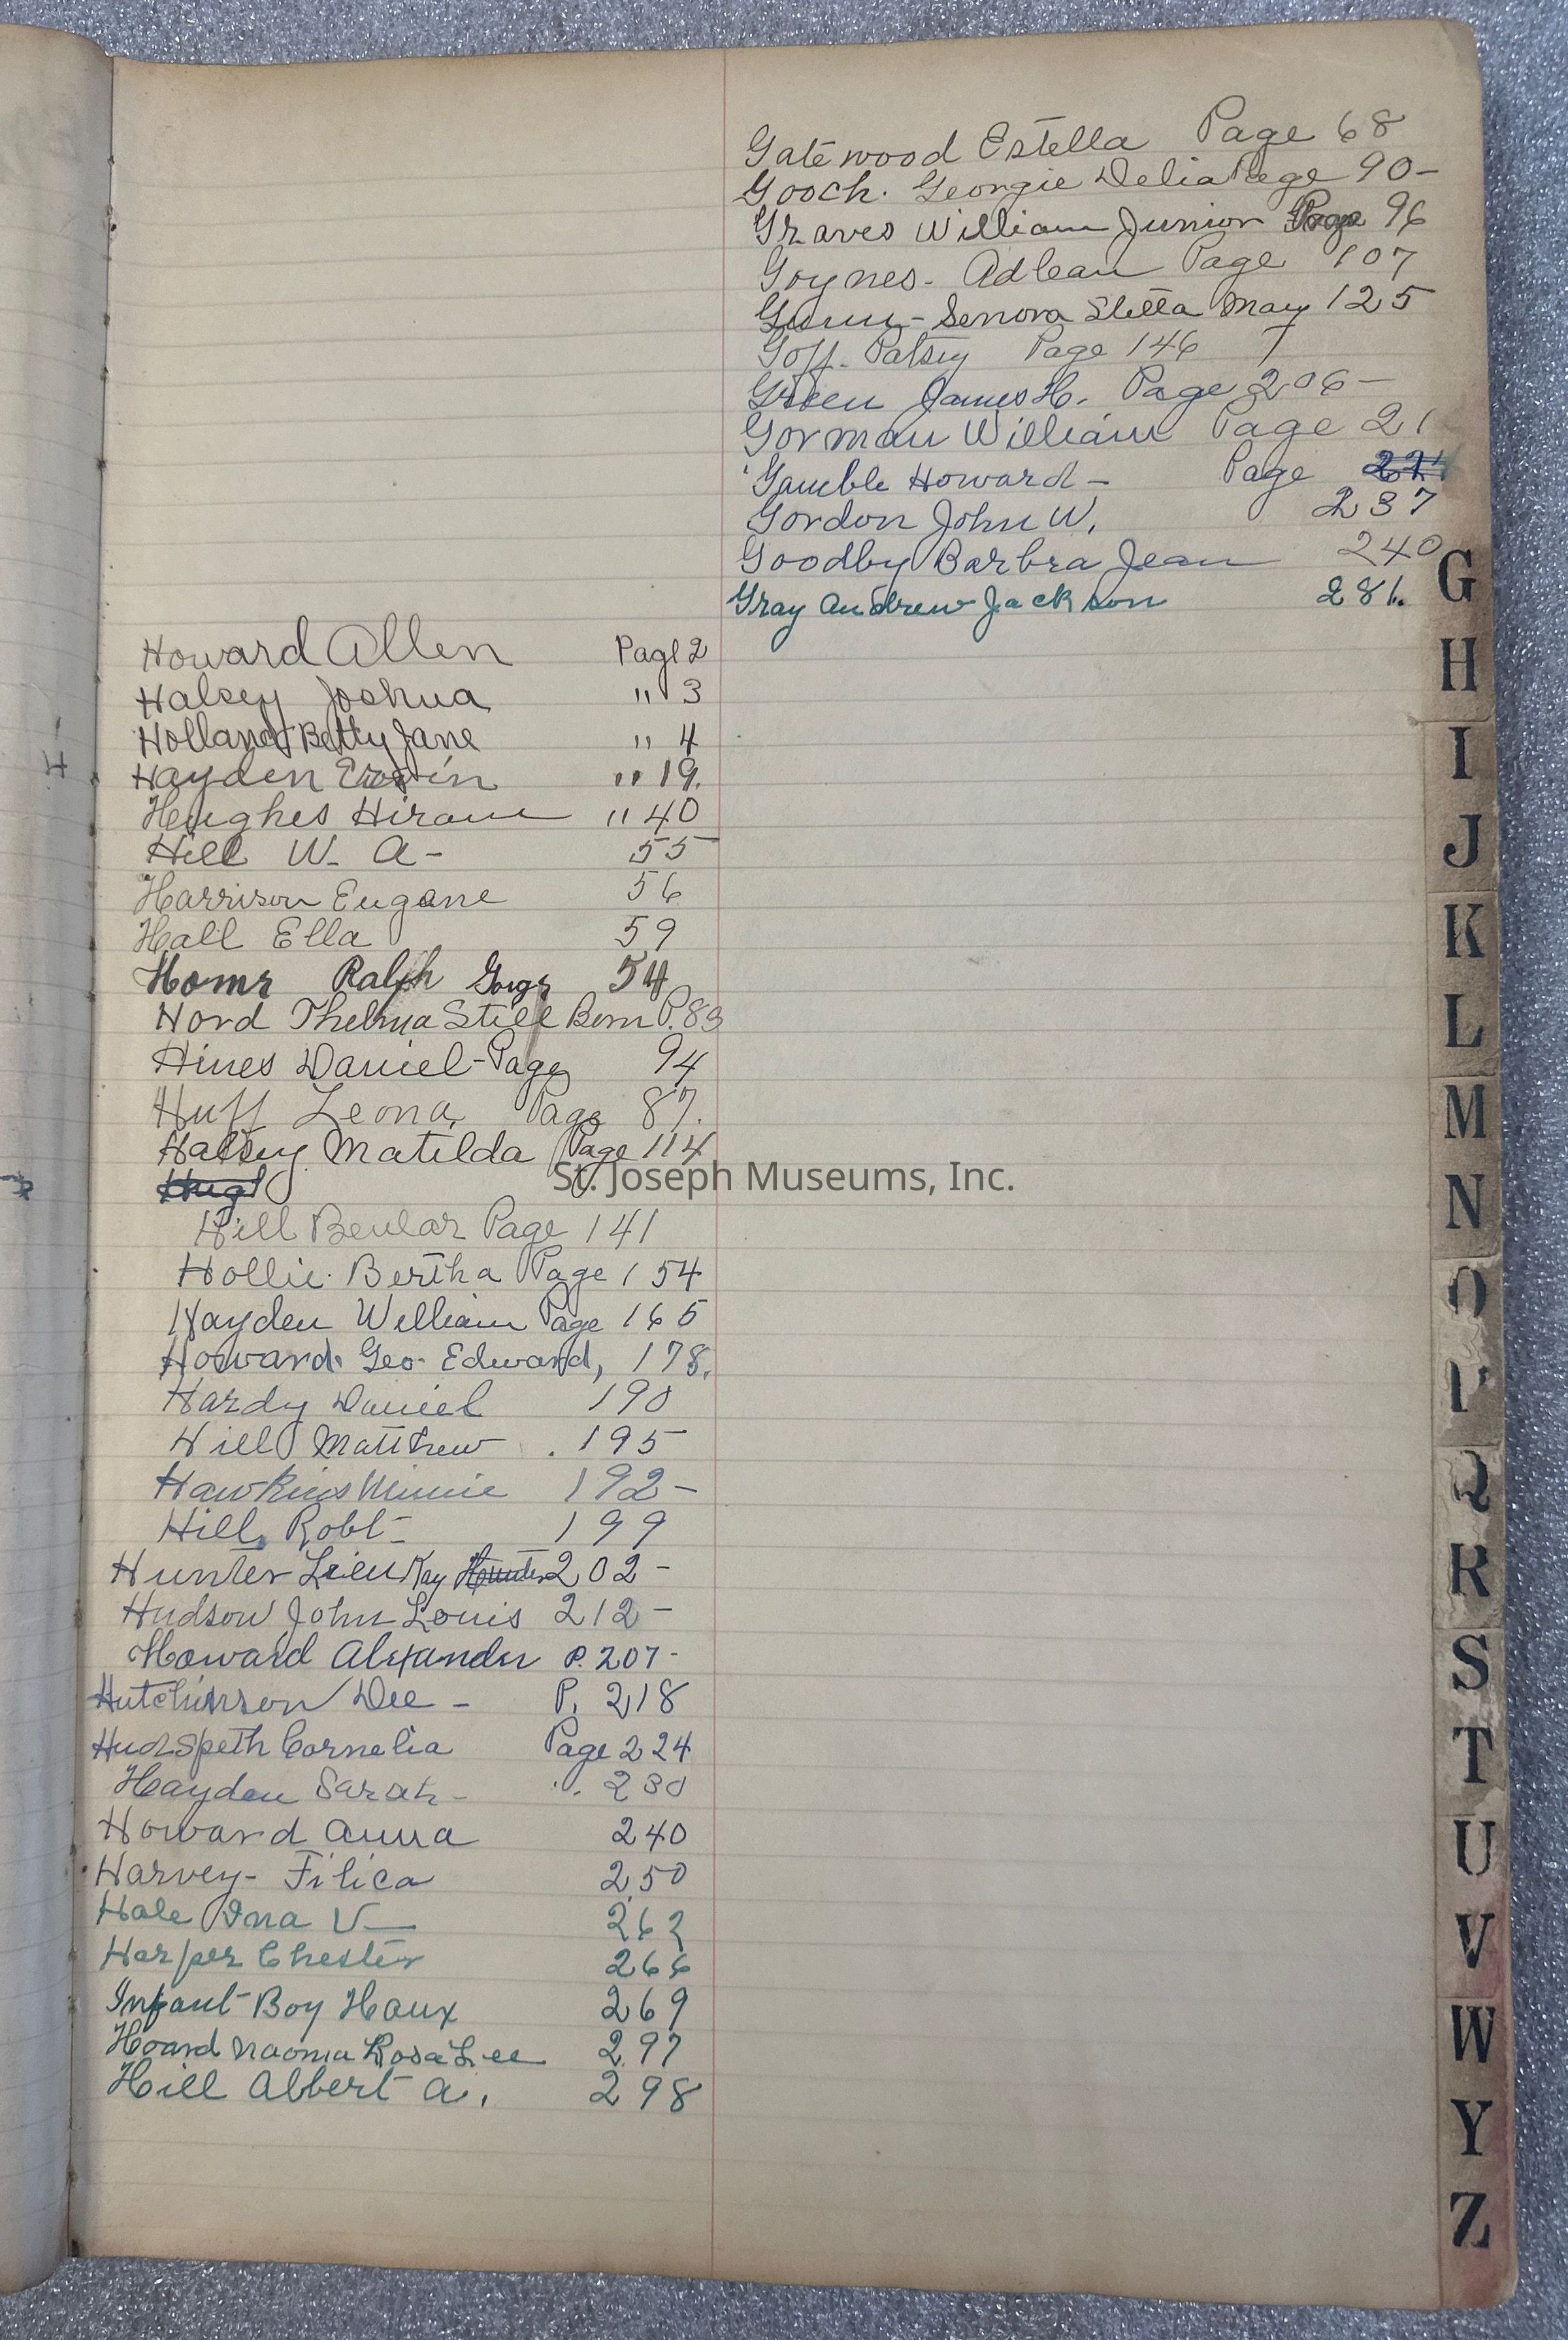 Gatewood Estella Page 68
Gooch. Georgie Delia Page 90-
Graves William Junior Page 96
Goynes. Adlean Page 107
Gunn - Senora Sletta May 125
Goff. Patsy Page 146
Green James H. Page 206-
Gorman William Page 21
Gamble Howard - Page 221
Gordon John W. 237
Goodby Barbra Jean 240
Gray Andrew Jackson 281.
Howard Allen Page 2
Halsey Joshua " 3
Holland Betty Jane " 4
Hayden " 19.
Hughes Hiram " 40
Hill W. A- 55
Harrison Eugene 56
Hall Ella 59
Ralph 54
Hord Thelma Still Born P. 83
Hines Daniel - Page 94
Huff Leona, Page 87.
Halsey Matilda Page 114
St. Joseph Museums, Inc.
Hugl
Hill Beular Page 141
Hollie. Bertha Page 154
Hayden William Page 165
Howard. Geo. Edward, 178.
Hardy Daniel 190
Hill Matthew . 195
Hawkins Minnie 192-
Hill, Robt- 199
Hunter Kay Hunter 202-
Hudson John Louis 212-
Howard Alexander P. 207-
Hutchinson Dee - P. 218
Hudspeth Cornelia Page 224
Hayden Sarah- " 230
Howard Anna 240
Harvey- Filica 250
Hale Ina V- 262
Harper Chester 266
Infant Boy Haux 269
Hoard Naoma Rosa Lee 297
Hill Albert A. 298
G
H
I
J
K
L
M
N
O
P
Q
R
S
T
U
V
W
Y
Z